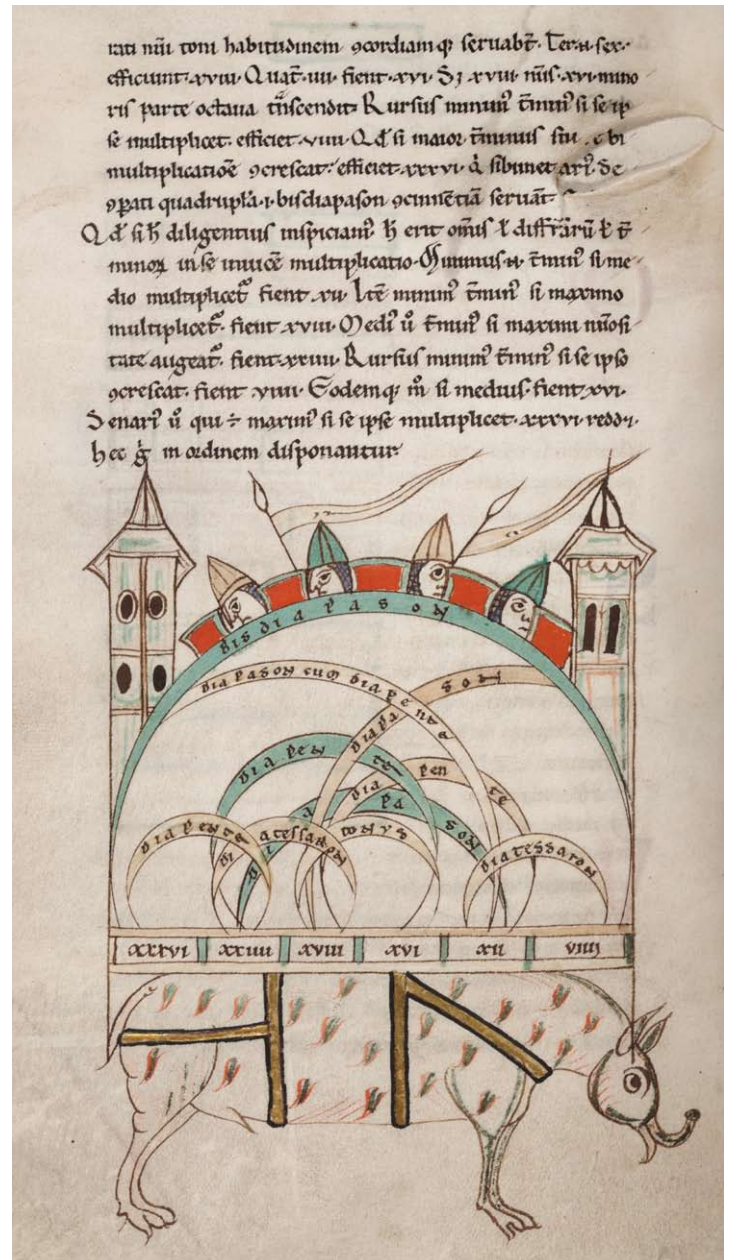 rati nūi toni habitudinem ꝯcordiamq; seruabt̄. Ter. n. sex.
efficiunt. xviii. Quat̄. iiii. fient. xvi. S; xviii. nūis. xvi. mino
ris parte octaua tn̄scendit. Rursus minimꝰ t̄minꝰ si se ip
se multiplicet. efficiet. viiii. Qd̓ si maior t̄minus sui bi
multiplicatiōe ꝯcrescat. efficiet. xxxvi. sibimet de
quadruplā. i. bisdiapason seruāt.
Qd̓ si h̄ diligentius inspiciamꝰ. h̄ erit om̄is t̄
minoꝝ in se inuicē multiplicatio. Minimus. n. t̄minꝰ si me
dio multiplicet̄. fient. xii. Itē minimꝰ t̄minꝰ si maximo
multiplicet̄. fient. xviii. Mediꝰ ū t̄minꝰ si maximi nūosi
tate augeat̄. fient. xxiiii. Rursus minimꝰ t̄minꝰ si se ipso
ꝯcrescat. fient viiii. Eodemq; m̄ si medius. fient. xvi.
Senariꝰ ū qui ÷ maximꝰ si se ipse multiplicet. xxxvi. redd.
hec ġ in ordinem disponantur
BISDIAPASON
DIAPASON CUM DIAPENTE
DIAPASON
DIAPENTE
DIAPENTE
DIAPASON
DIAPENTE
DIATESSARON
TONUS
DIATESSARON
xxxvi xxiiii xviii xvi xii viiii